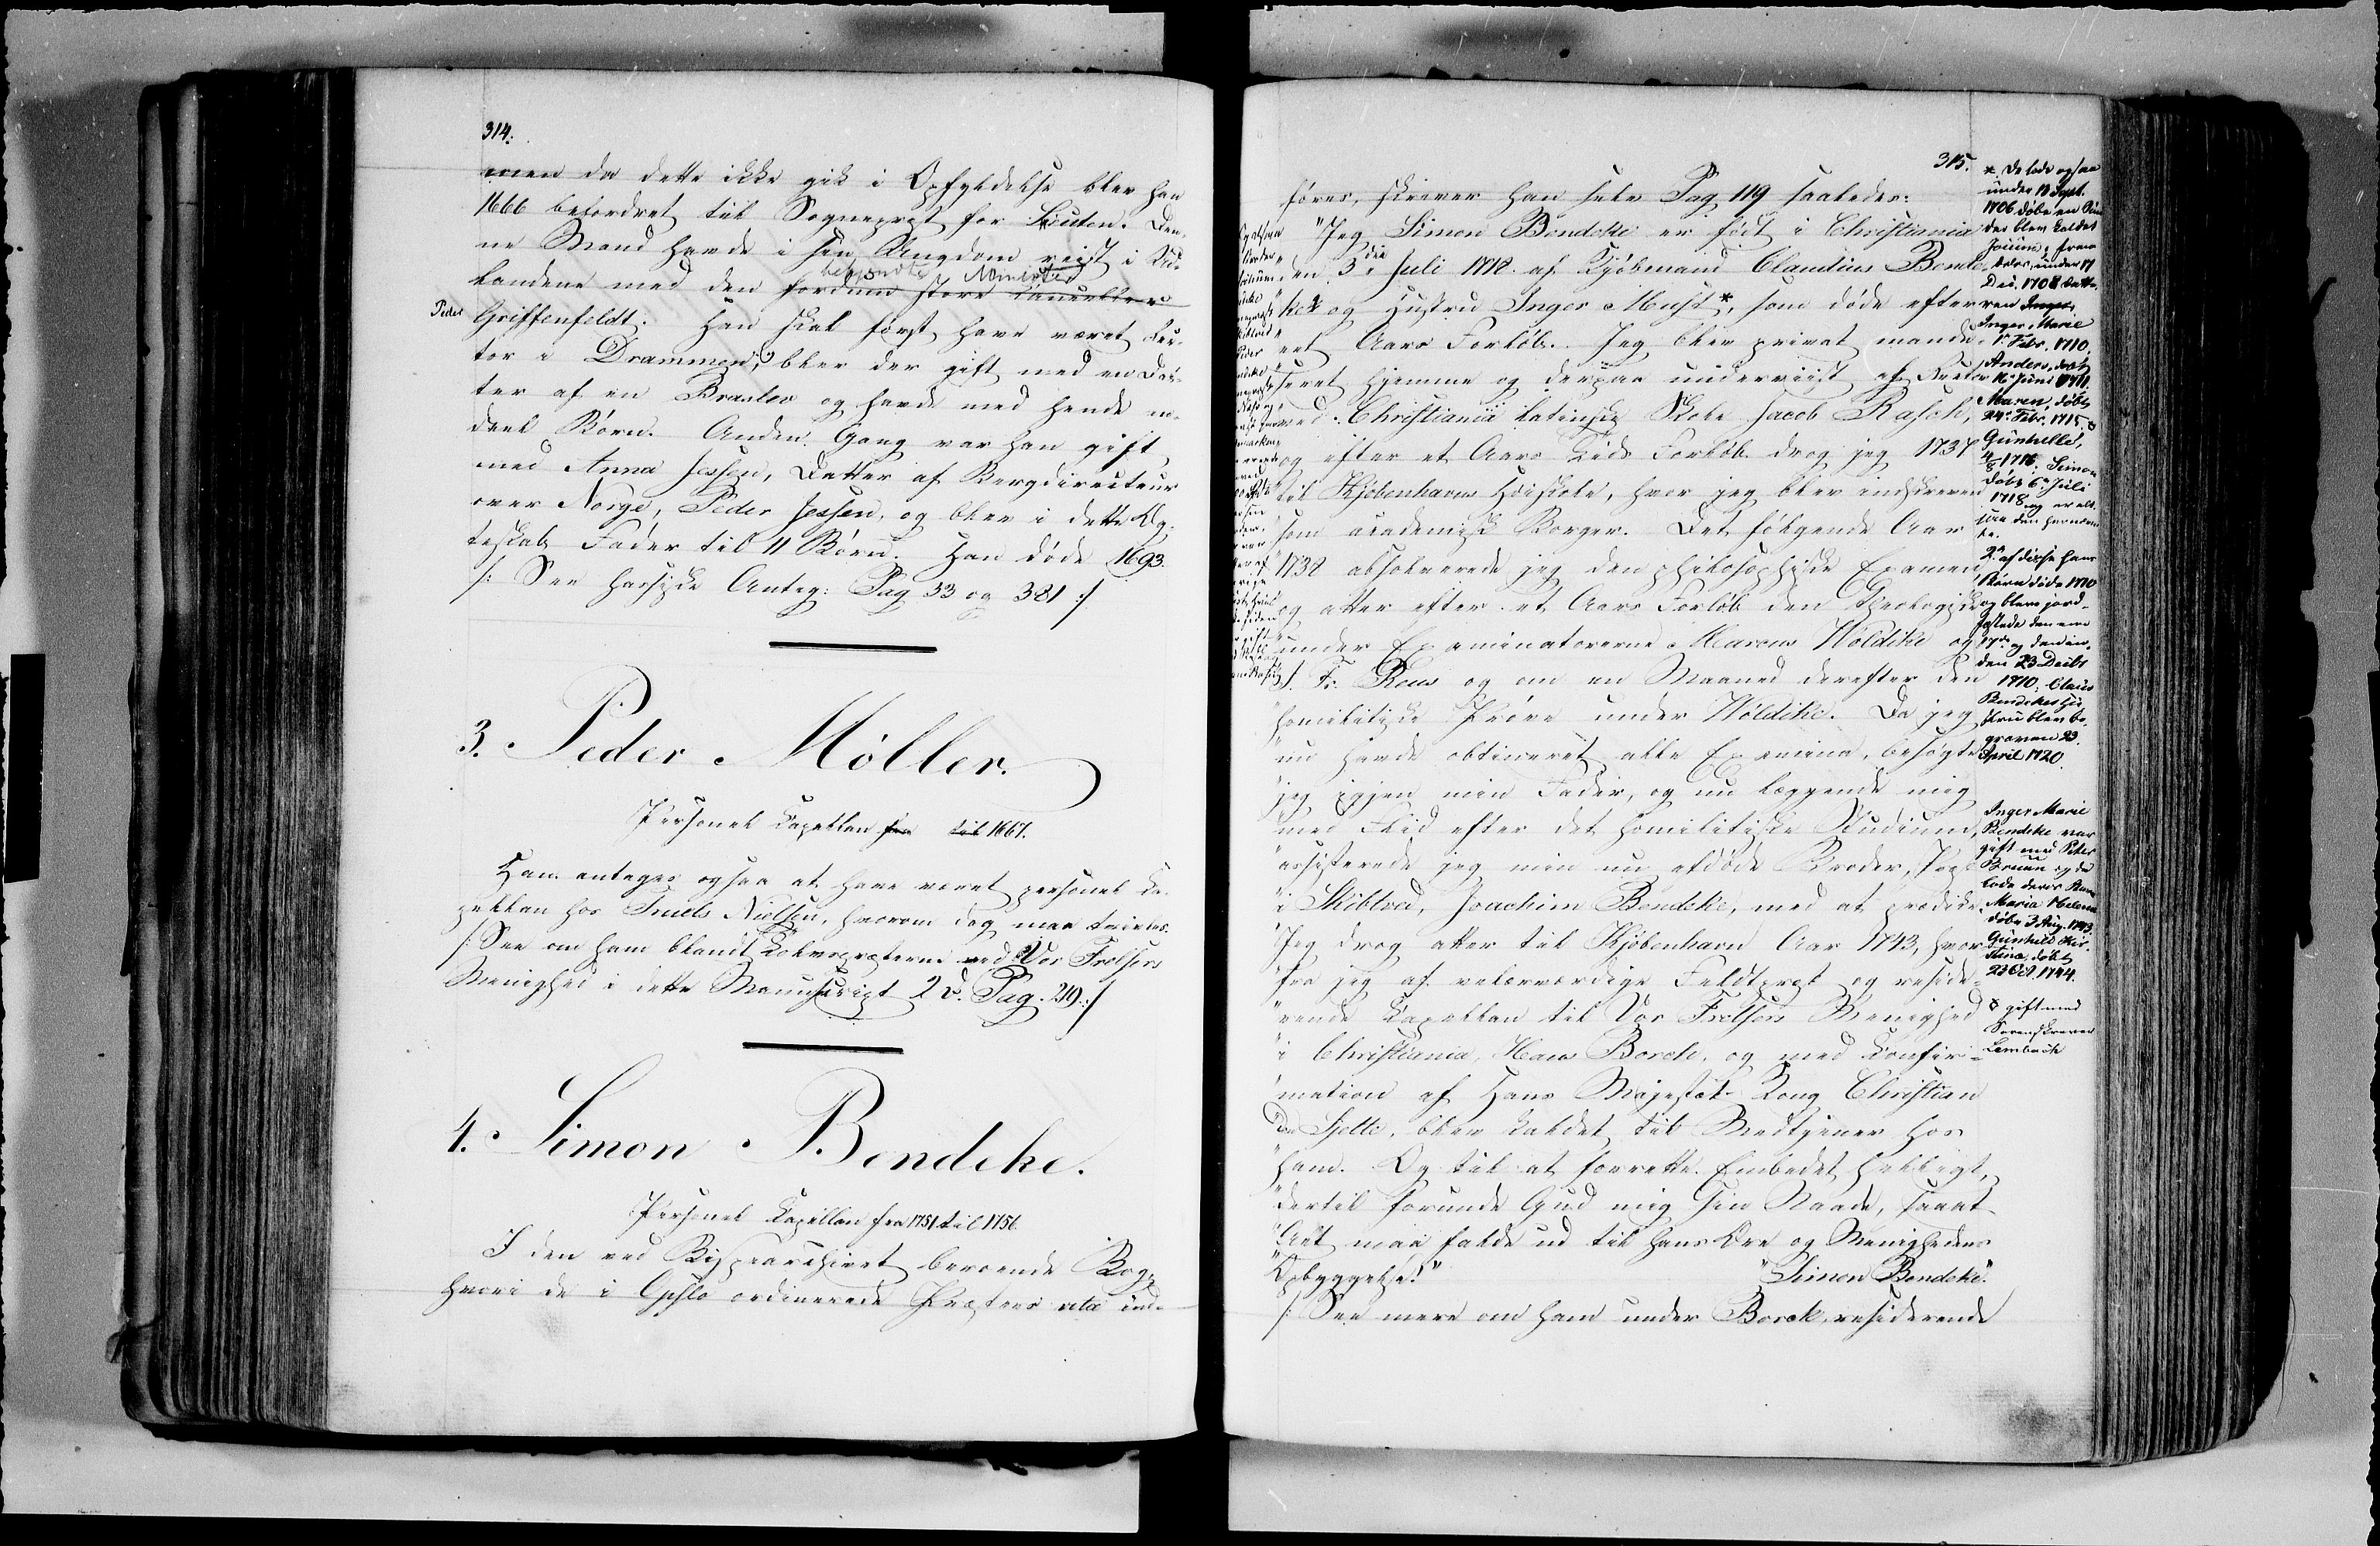 314.
men da dette ikke gik i Opfyldelse blev han
1666 befordret til Sognepræst for Leuten. Den-
ne Mand havde i sin Ungdom reist i Ud-
landene med den fordum store Canceller
bekjendte Minister
Peder Griffenfeldt. Han skal først have været Rec-
tor i Drammen, blev der gift med en Dat-
ter af en Braslev og havde med hende en-
deel Børn. Anden Gang var han gift
med Anna Jessen, Datter af Bergdirecteur
over Norge, Peder Jessen, og blev i dette Æg-
teskab Fader til 11 Børn. Han døde 1693.
/: See hosføiede Antegn: Pag 33 og 381 :/
3. Peder Møller.
Personel Kapellan fra til 1667.
Han antages ogsaa at have været personel Ka-
pellan hos Truels Nielsen, hvorom dog maa tvivles.
/: See om ham blandt Sognepræsterne ved Vor Frelsers
Menighed i dette Manuscript 2 D. Pag. 219 :/
4. Simon Bendeke.
Personel Kapellan fra 1751 til 1756.
I den ved Bispearchivet beroende Bog,
hvori de i Opslo ordinerede Præsters vita ind-
315.
føres, skriver han selv Pag 119 saaledes:
"Jeg Simon Bendeke er født i Christiania
den 3die Juli 1718. af Kjøbmand Claudius Bende-
ke og Hustru Inger Must*, som døde efter
et Aars Forløb. Jeg blev privat mandu-
ceret hjemme og derpaa underviist af Rector
ved Christiania latinske Skole Jacob Rasch,
og efter et Aars Tids Forløb drog jeg 1737
til Kjøbenhavns Høiskole, hvor jeg blev indskreven
som academisk Borger. Det følgende Aar
1738 absolverede jeg den philosophiske Examen
og atter efter et Aars Forløb den theologiske
under Examinatorerne Marcus Wøldike og
J. Fr. Reus og om en Maaned derefter den
"homiletiske Prøve under Wøldike. Da jeg
"nu havde obtineret alle Examina, besøgte
"jeg igjen min Fader, og nu læggende mig
"med Flid efter det homiletiske Studium,
"assisterede jeg min nu afdøde Broder, Præst
"i Skibtved, Joachim Bendeke, med at prædike.
"Jeg drog atter til Kjøbenhavn Aar 1743, hvor-
"fra jeg af velærværdige Feldtpræst og reside-
"rende Kapellan til Vor Frelsers Menighed
"i Christiania, Hans Borch, og med Confir-
"mation af Hans Majestæt Kong Christian
"den Sjette, blev kaldet til Medtjener hos
"ham. Og til at forrette Embedet helligt,
"dertil forunde Gud mig sin Naade, saa at
"Alt maa falde ud til hans Ære og Menighedens
"Opbyggelse."
"Simon Bendeke".
/: See mere om ham under Borch, residerende
*. De lode ogsaa
under 18 Sept.
1706 døbe en Søn
der blev kaldet
Jochum; frem-
deles, under 17
Dec. 1708 Datte-
ren Inger,
Inger Marie
1 Febr. 1710,
Anders, døbt
16 Juni 1711.
Maren, døbt
24 Febr. 1715. ⸸
Gunhilld,
4/8 1716. Simon
døbt 6 Juli
1718 og er alt-
saa den hernævn-
te.
2 af disse hans
Børn døde 1710
og bleve jord-
fæstede den ene
17de og den an-
den 23 Decbr
1710. Claus
Bendekes Hu-
stru blev be-
graven 23
April 1720.
Inger Marie
Bendeke var
gift med Peter
Bruun og de
lode deres Børn
Maria Helena
døbe 3 Aug. 1743.
Gunhild Kir-
stine, døbt
23 Oct. 1744.
⸸ gift med
Sorenskriver
Lembach